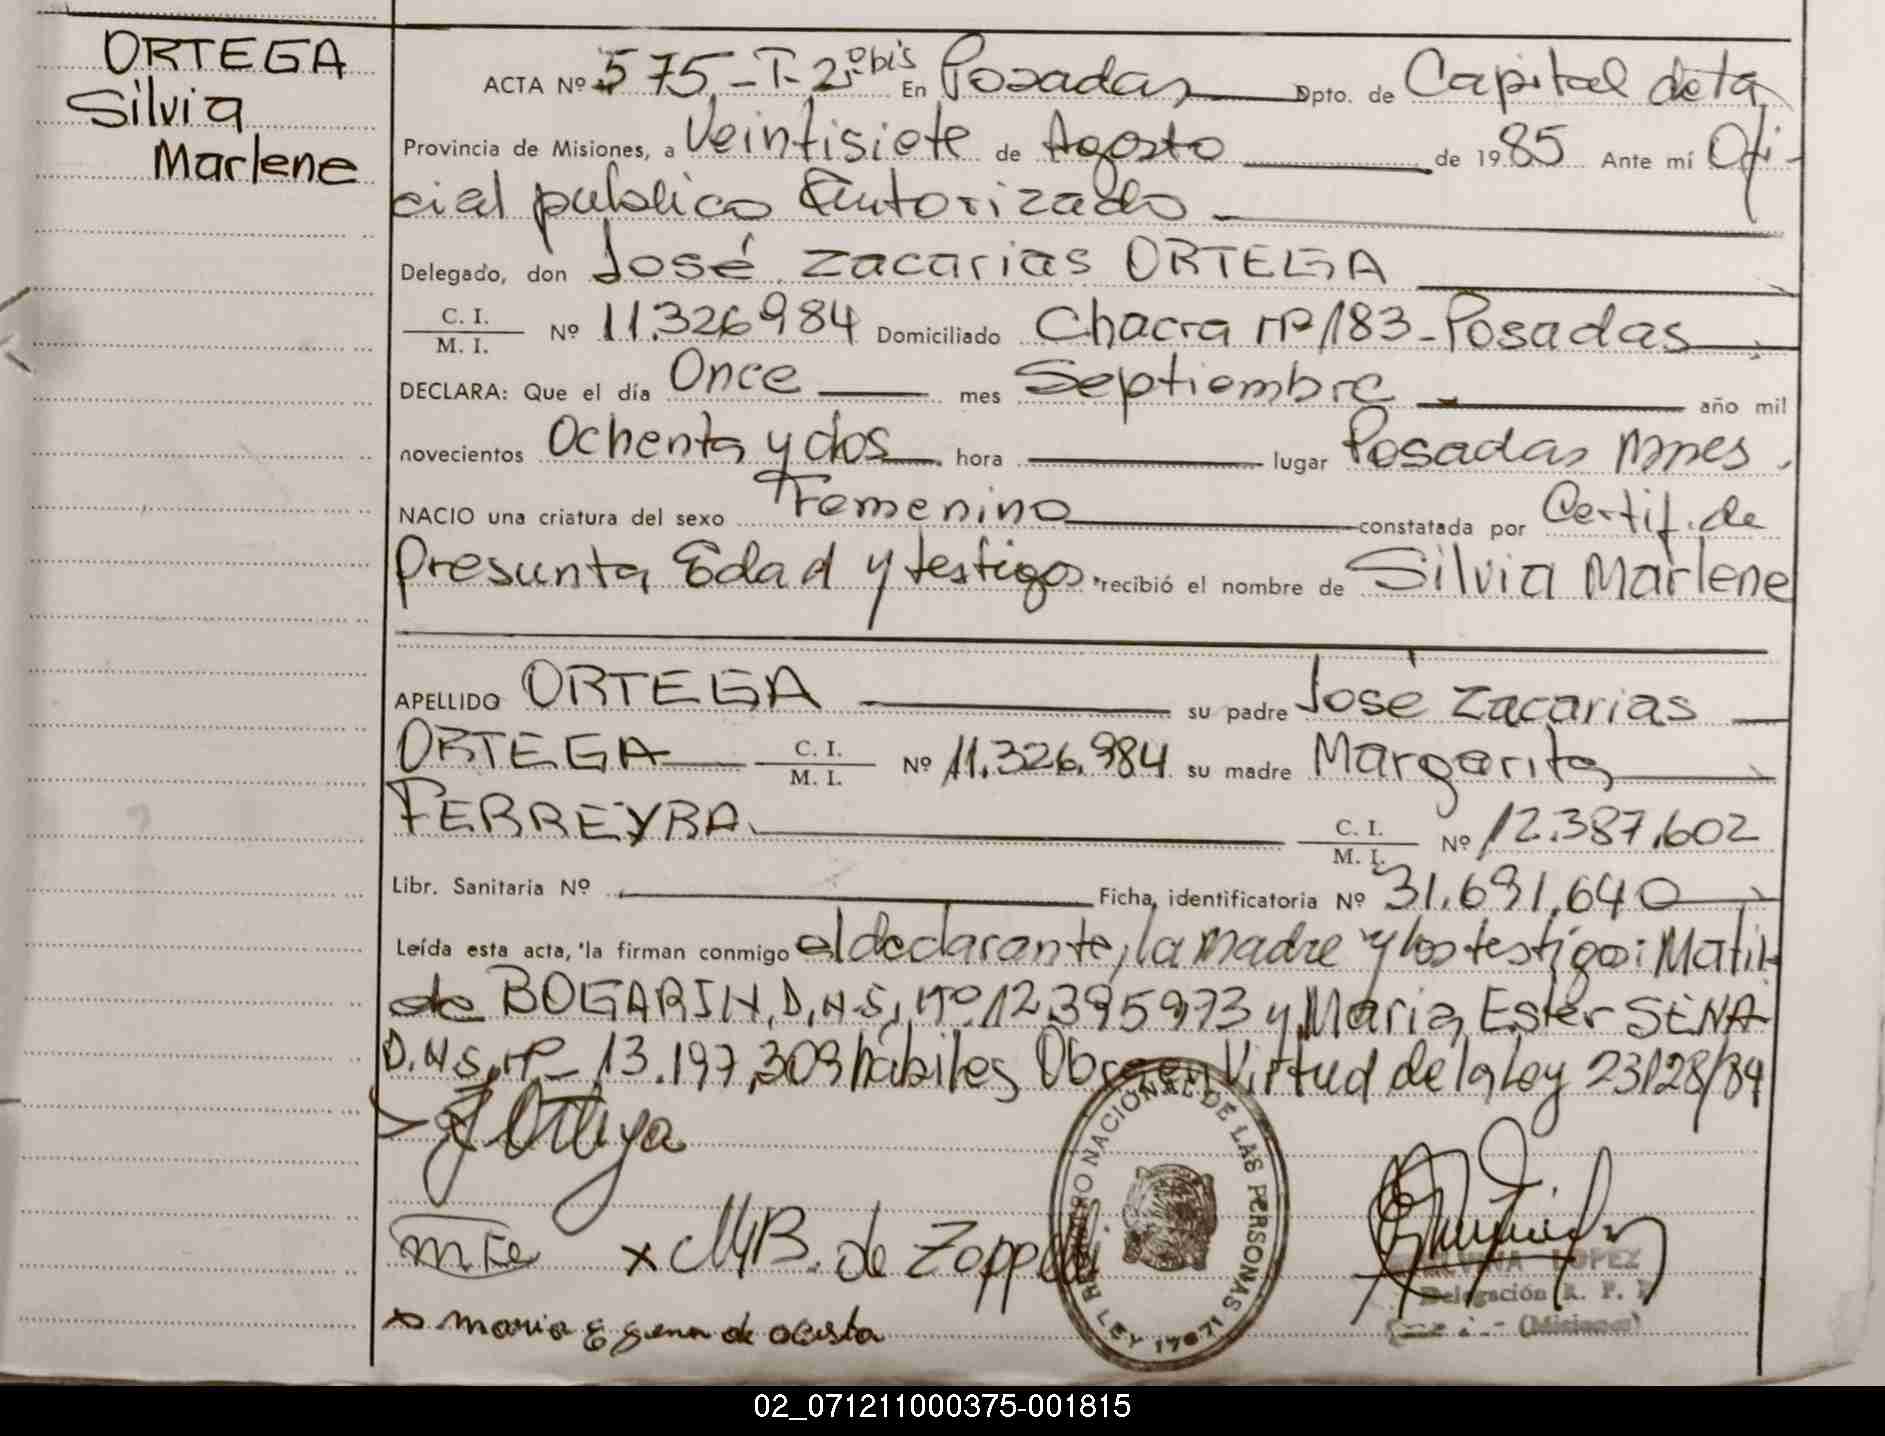 ORTEGA
Silvia
Marlene
ACTA Nº 575-T-2º bis En Posadas Dpto. de Capital de la
Provincia de Misiones, a Veintisiete de Agosto de 1985 Ante mí Ofi-
cial publico Autorizado
Delegado, don José Zacarias ORTEGA
C. I.
M. I. Nº 11.326984 Domiciliado Chacra nº 183-Posadas
DECLARA: Que el día Once mes Septiembre año mil
novecientos Ochenta y dos hora lugar Posadas Mnes.
NACIO una criatura del sexo Femenino constatada por Certif. de
Presunta Edad y testigos recibió el nombre de Silvia Marlene
APELLIDO ORTEGA su padre José Zacarias
ORTEGA C. I. M. I. Nº 11.326.984 su madre Margarita
FERREYRA C. I. M. I. Nº 12.387.602
Libr. Sanitaria Nº Ficha identificatoria Nº 31.691.640
Leída esta acta, la firman conmigo el declarante, la madre y los testigos: Matil
de BOGARIN, D.N.I. Nº 12.395973 y Maria Ester SENA
D.N.I. Nº 13.197.309 hábiles, Obra en Virtud de la Ley 23128/84
J Ortega
x MB. de Zopp
x maria E sena de acosta
REGISTRO NACIONAL DE LAS PERSONAS
LEY 17671
LOPEZ
Delegación R. P.
(Misiones)
02_071211000375-001815